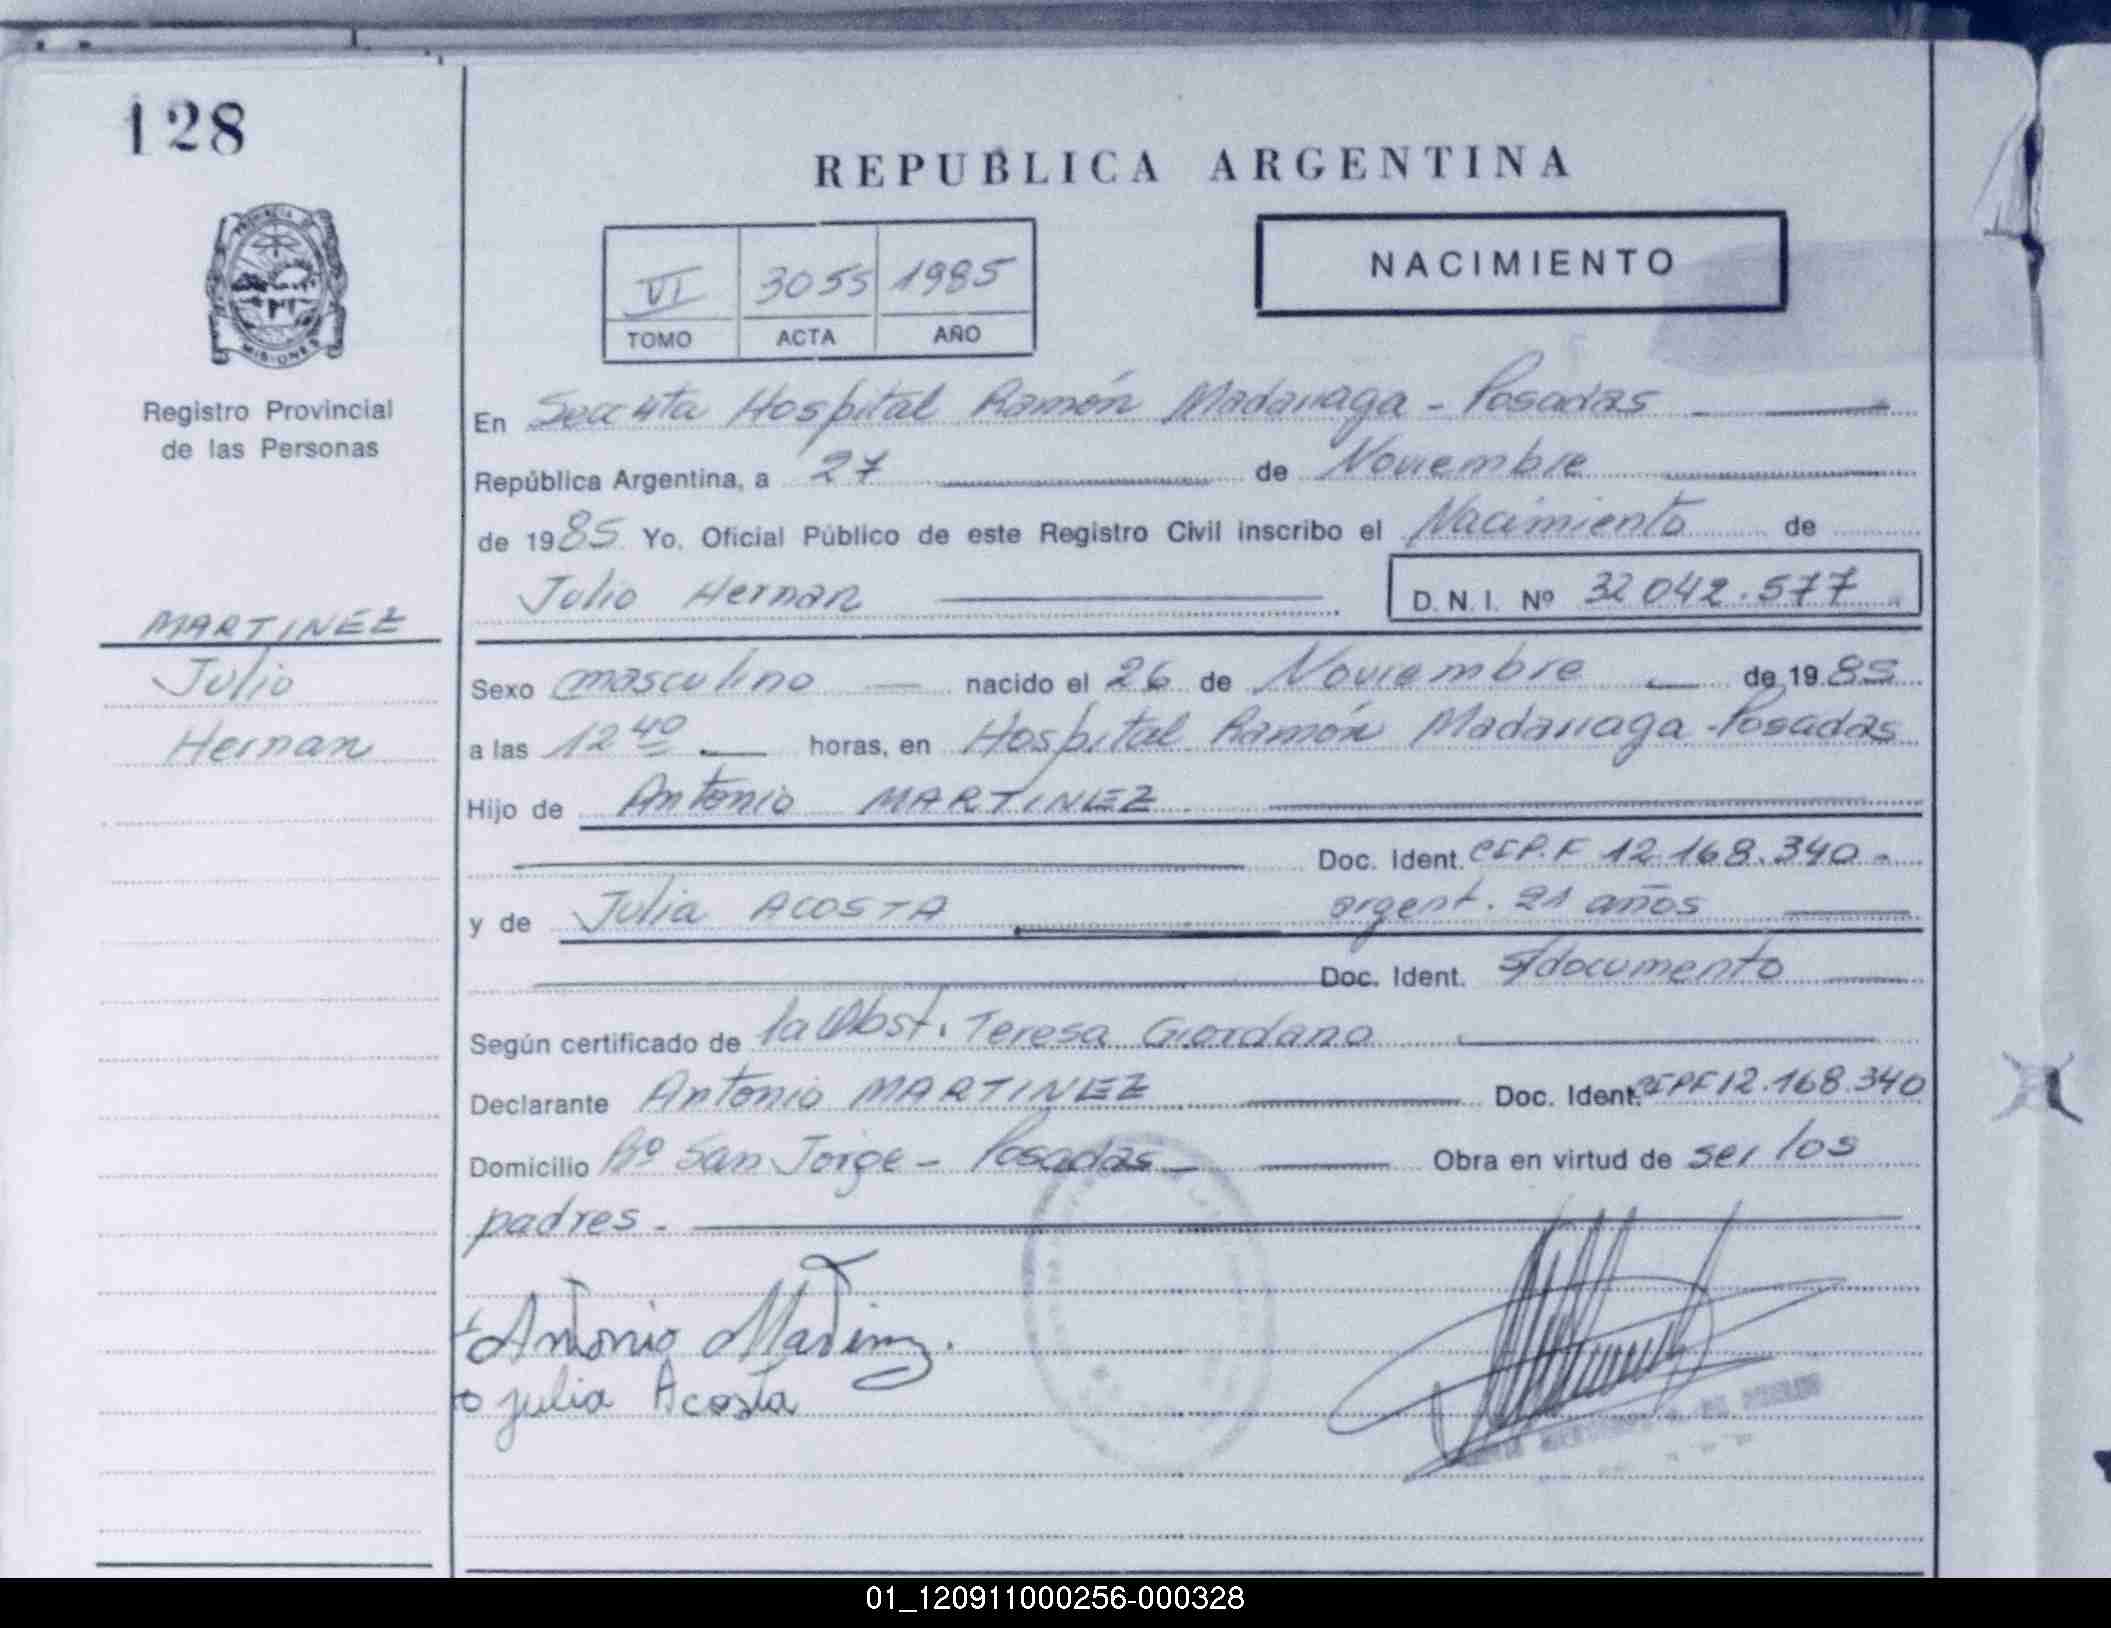 128
REPUBLICA ARGENTINA
NACIMIENTO
VI 3055 1985
TOMO ACTA AÑO
PROVINCIA DE
MISIONES
Registro Provincial
de las Personas
En Secc 4ta Hospital Ramón Madariaga - Posadas
República Argentina, a 27 de Noviembre
de 1985 Yo, Oficial Público de este Registro Civil inscribo el Nacimiento de
Julio Hernan D.N.I. Nº 32042.577
MARTINEZ
Julio
Hernan
Sexo masculino nacido el 26 de Noviembre de 1985
a las 12 40 horas, en Hospital Ramón Madariaga - Posadas
Hijo de Antonio MARTINEZ
Doc. Ident. CIP.F 12.168.340
y de Julia ACOSTA argent. 21 años
Doc. Ident. S/documento
Según certificado de la Obst. Teresa Giordano
Declarante Antonio MARTINEZ Doc. Ident. CIPF 12.168.340
Domicilio Bº San Jorge - Posadas - Obra en virtud de ser los
padres.
Antonio Martinez.
Julia Acosta
01_120911000256-000328